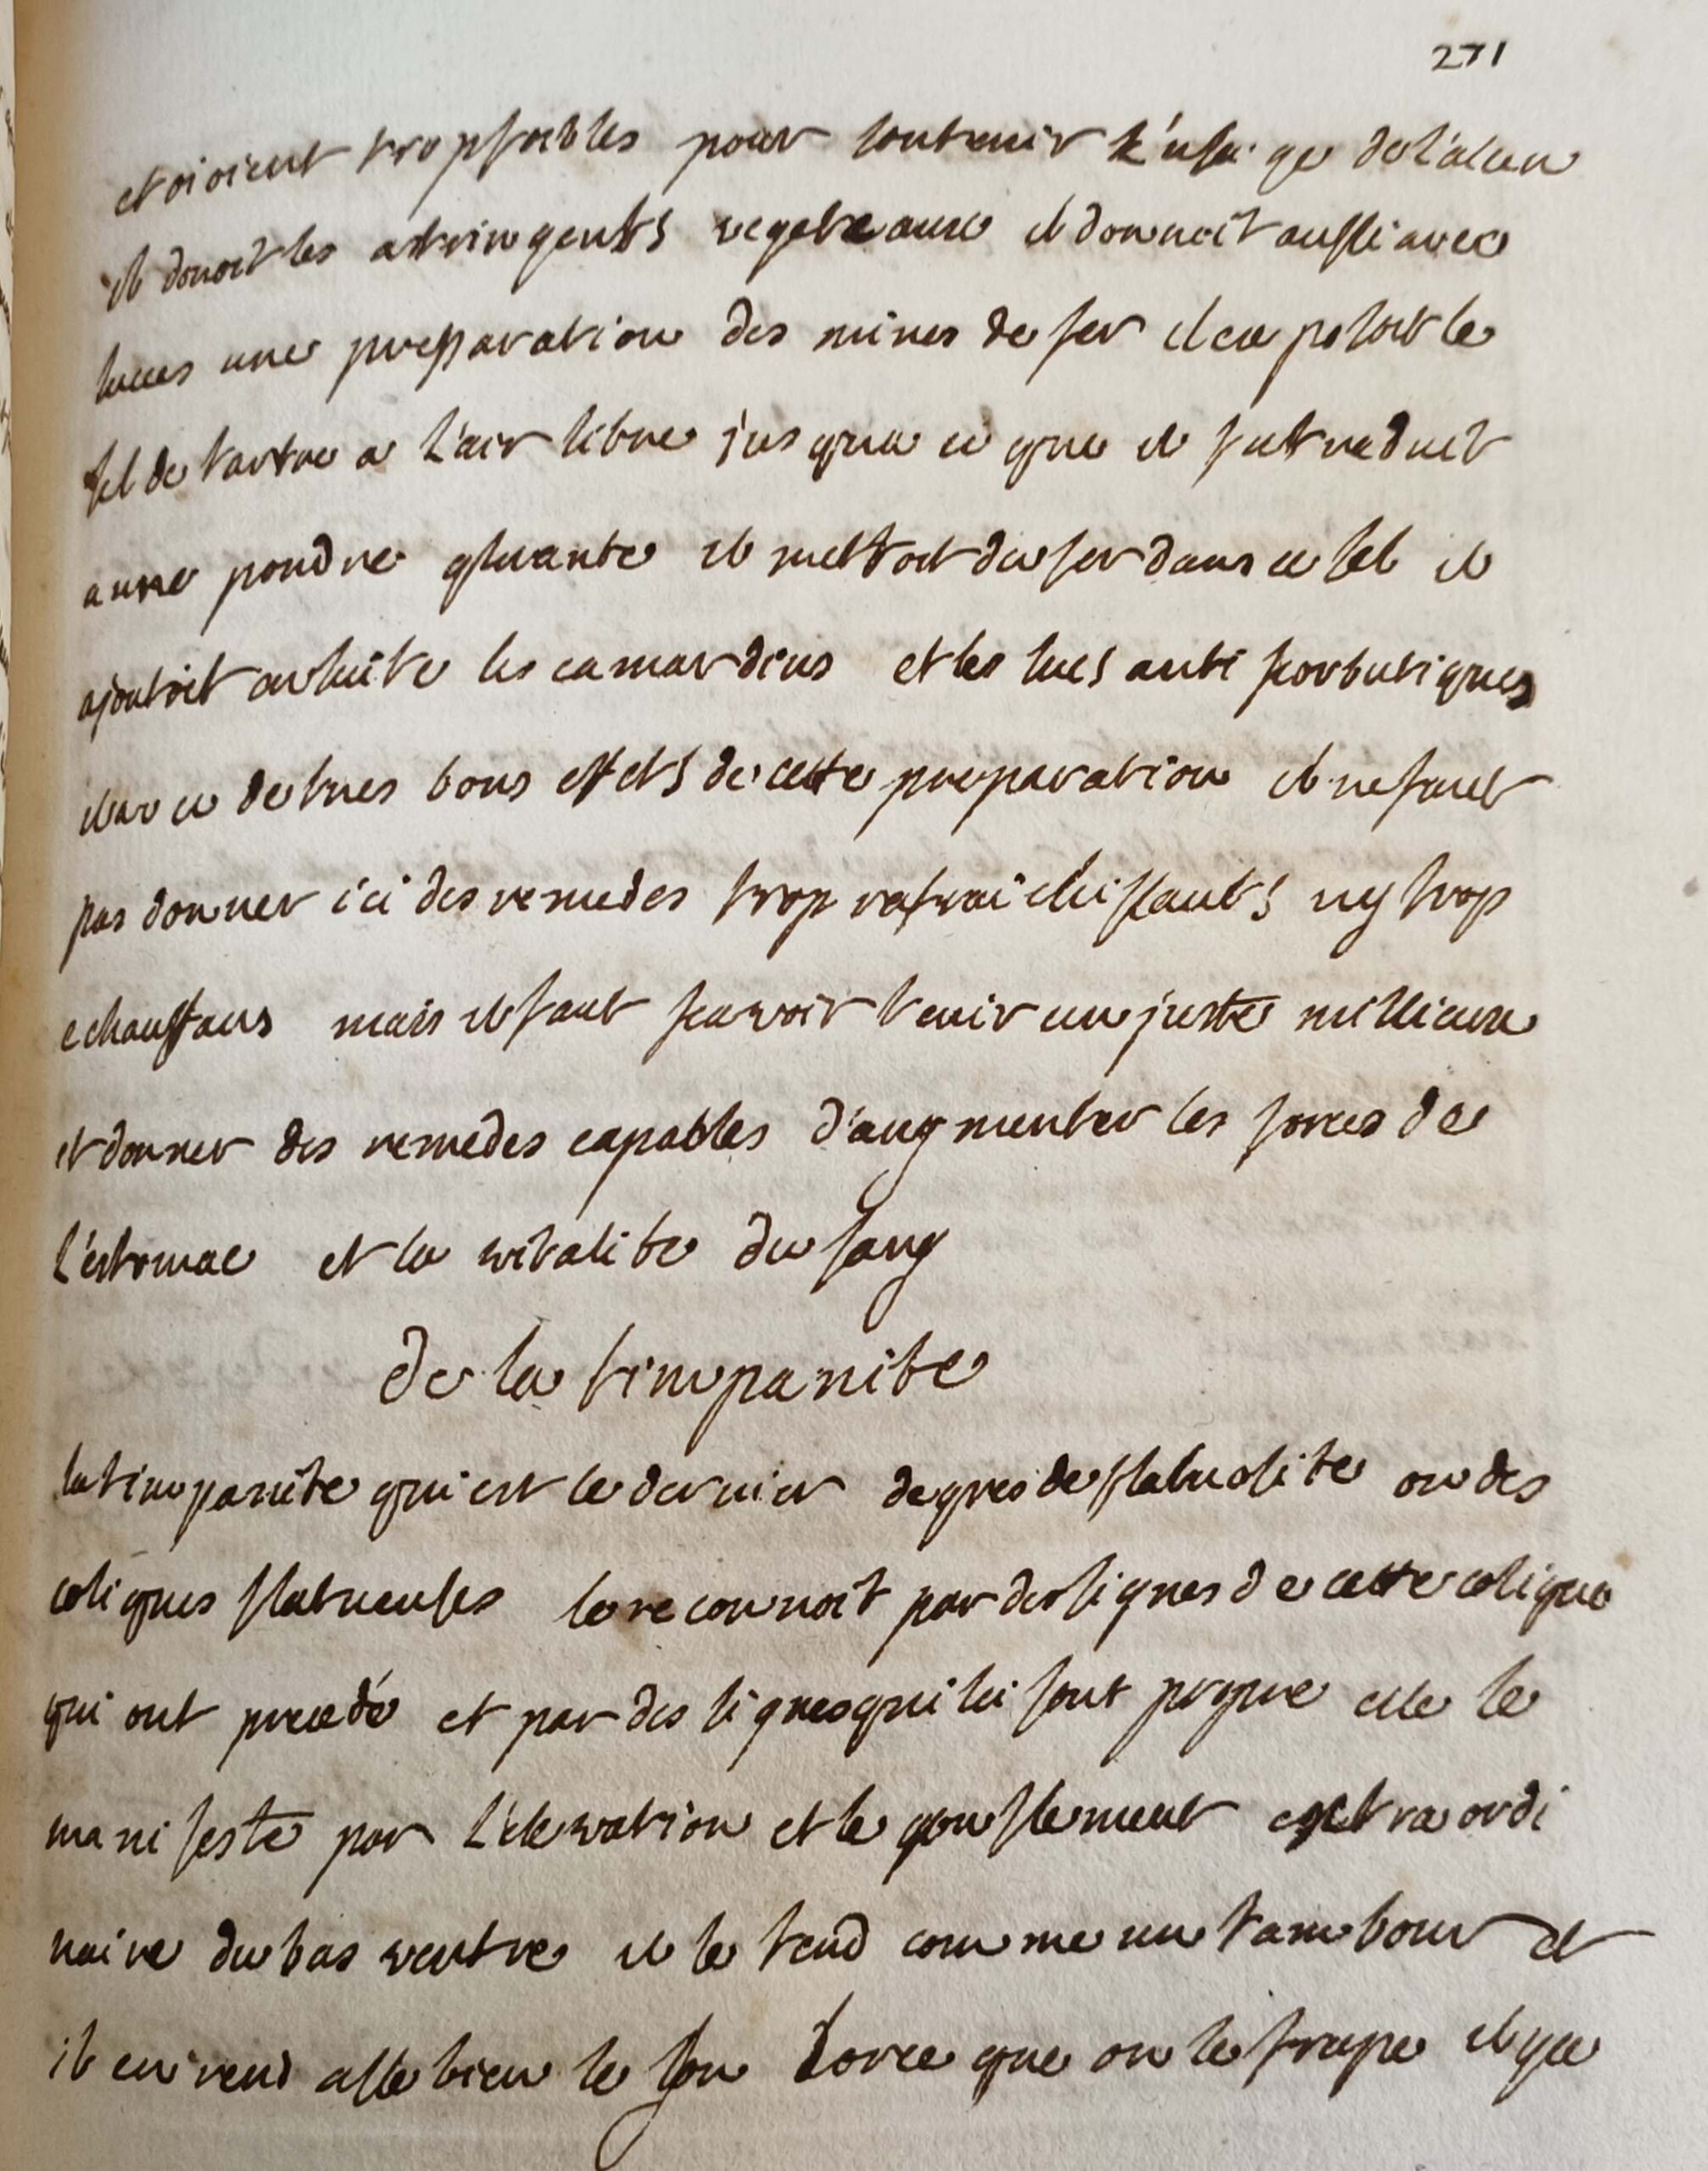 271
etoioient trop foibles pour soutenir l'usage de l'alun
il donoit les astringents vegeteaux il donnoit aussi avec
succes une preparation des mines de fer il exposoit le
sel de tartre a l'air libre jusqua ce que il fut reduit
a une poudre gluante il mettoit du fer dans ce sel il
ajoutoit ensuite les camardins et les sucs anti scorbutiques
il a vu de tres bons effets de cette preparation il ne faut
pas donner ici des remedes trop rafraichissants ny trop
echauffans mais il faut scavoir tenir un juste millieux
et donner des remedes capables d'augmenter les forces de
l'estomac et la vitalite du sang
de la timpanite
la timpanite qui est le dernier degres de flatuosite ou des
coliques flatueuses se reconnoit par des signes de cette colique
qui ont precedé et par des signes qui lui sont propre elle se
manifeste par l'elevation et le gonflement extraordi
naire du bas ventre il se tend comme un tambour et
il en rend asse bien le son lorce que on le frape il y a